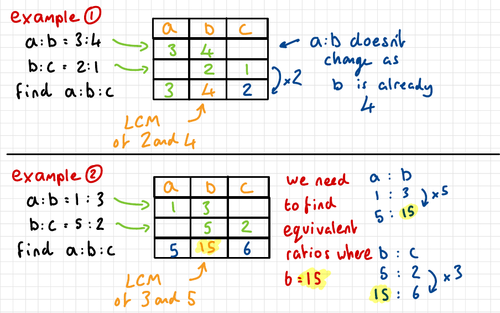 example ①
a:b = 3:4
b:c = 2:1
find a:b:c
a b c
3 4
2 1
3 4 2
×2
LCM
of 2 and 4
a:b doesn't
change as
b is already
4
example ②
a:b = 1:3
b:c = 5:2
find a:b:c
a b c
1 3
5 2
5 15 6
LCM
of 3 and 5
we need
to find
equivalent
ratios where
b = 15
a : b
1 : 3
5 : 15
×5
b : c
5 : 2
15 : 6
×3